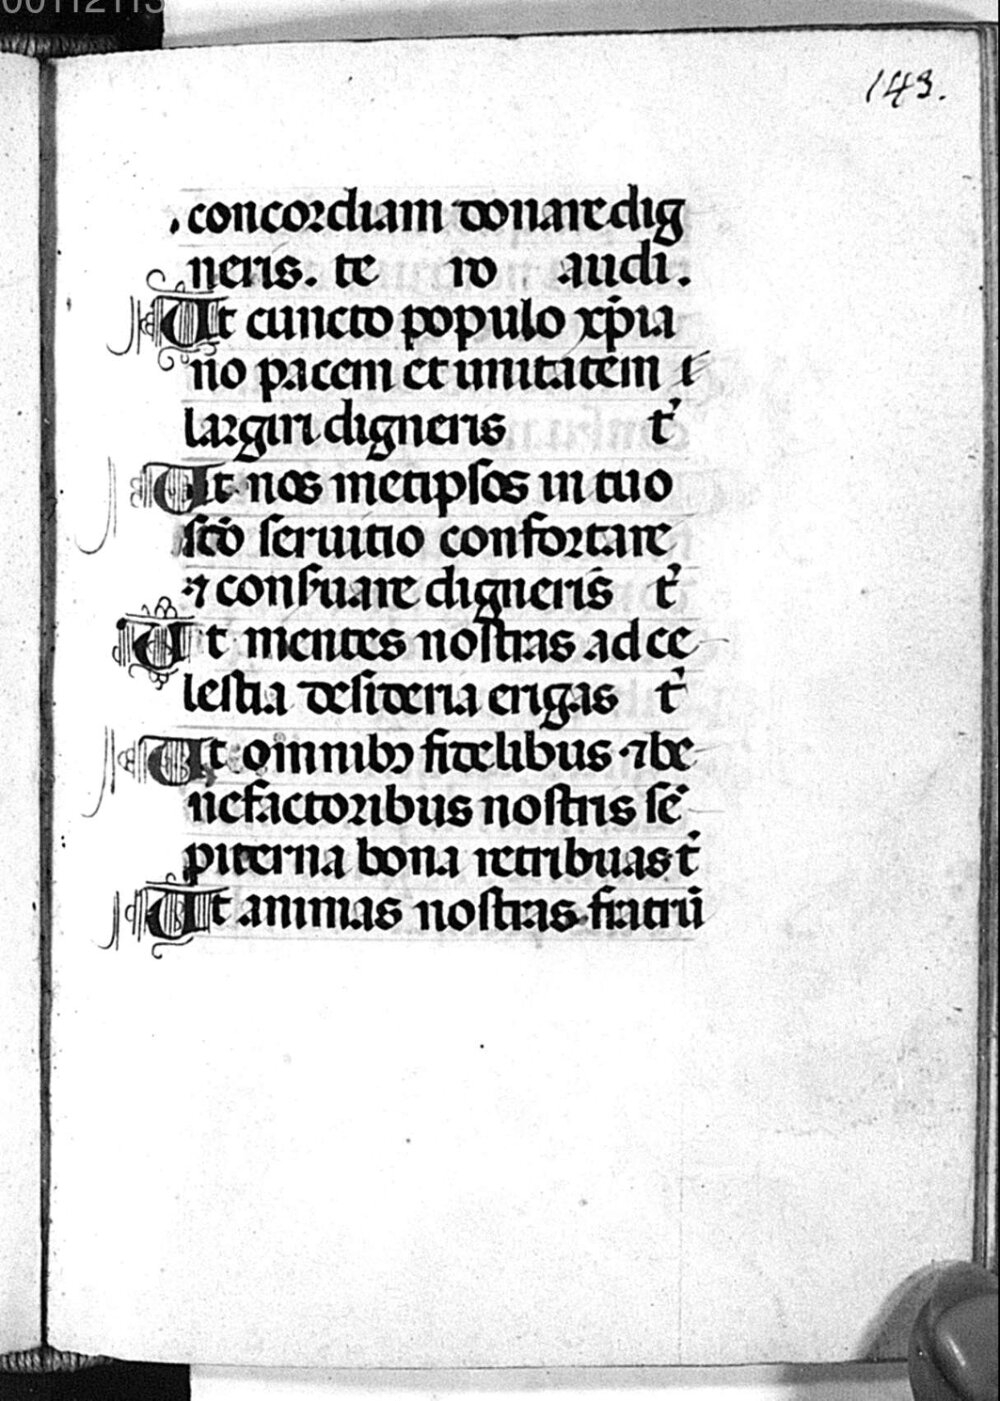 00112113
143.
concordiam donare dig
neris. te ro audi.
Ut cuncto populo xp̄ia
no pacem et unitatem
largiri digneris t᷒
Ut nos metipsos in tuo
scō seruitio confortare
⁊ conſ̄uare digneris t᷒
Ut mentes nostras ad ce
lestia desideria erigas t᷒
Ut omnibꝫ fidelibus ⁊ be
nefactoribus nostris sē
piterna bona retribuas t᷒
Ut animas nostras fratrū